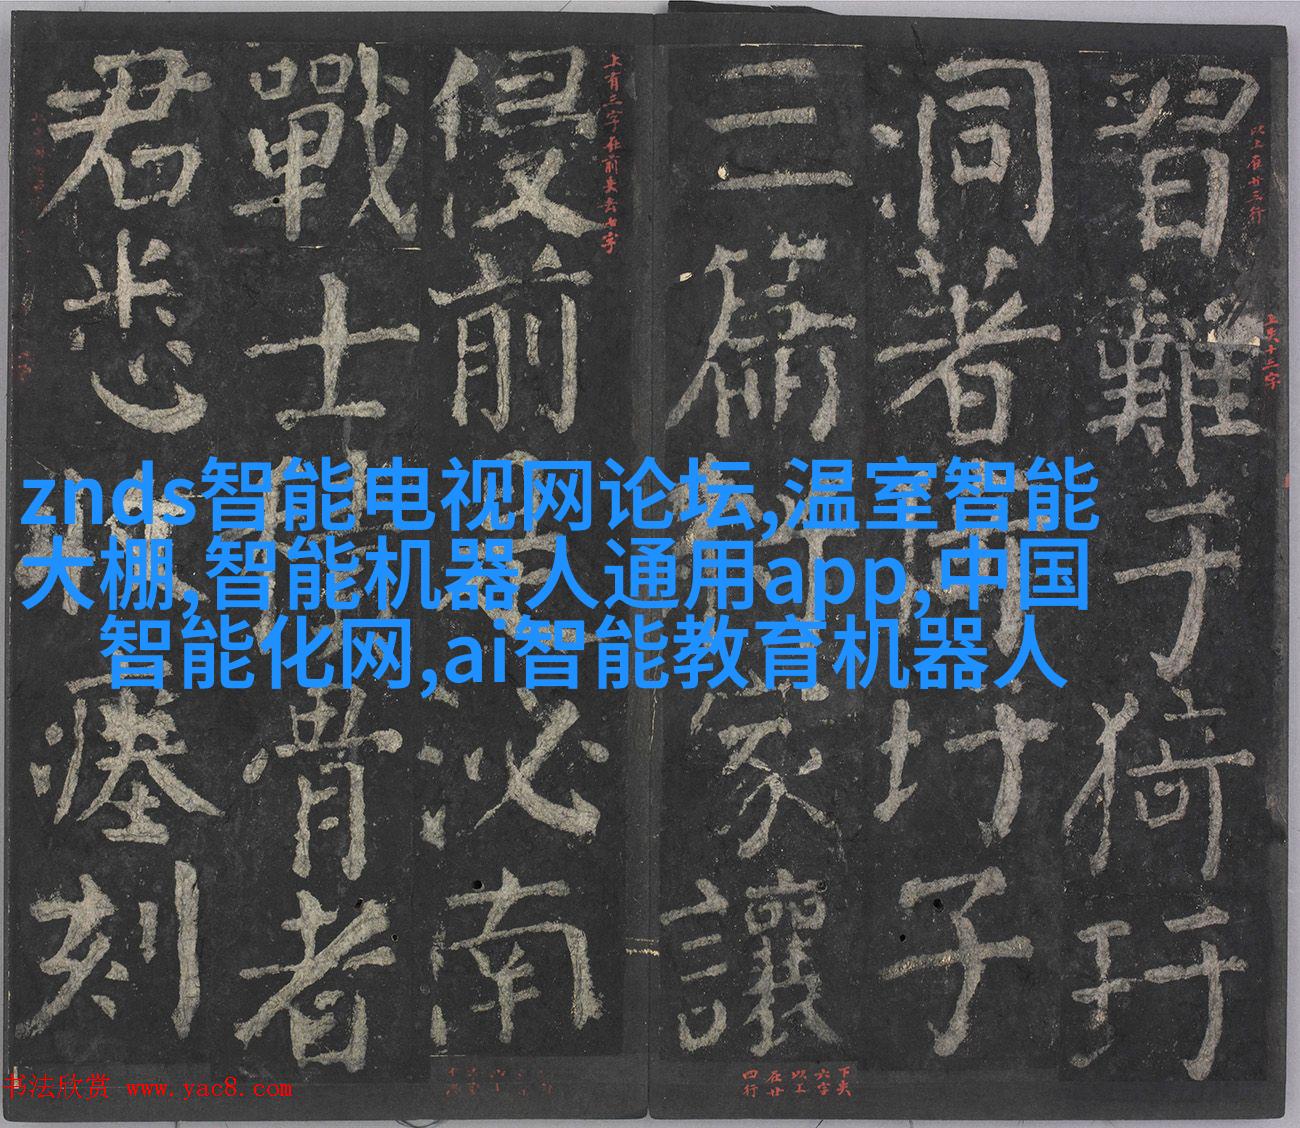 znds智能电视网论坛,温室智能
大棚,智能机器人通用app,中国
智能化网,ai智能教育机器人
習難于猗玗
洞著玗子
三篇家讓
侵前必南
戰士骨者
君悉瘞刻
以上在廿三行
上失十三字
下失六字以上在廿四行
书法欣赏 www.yac8.com